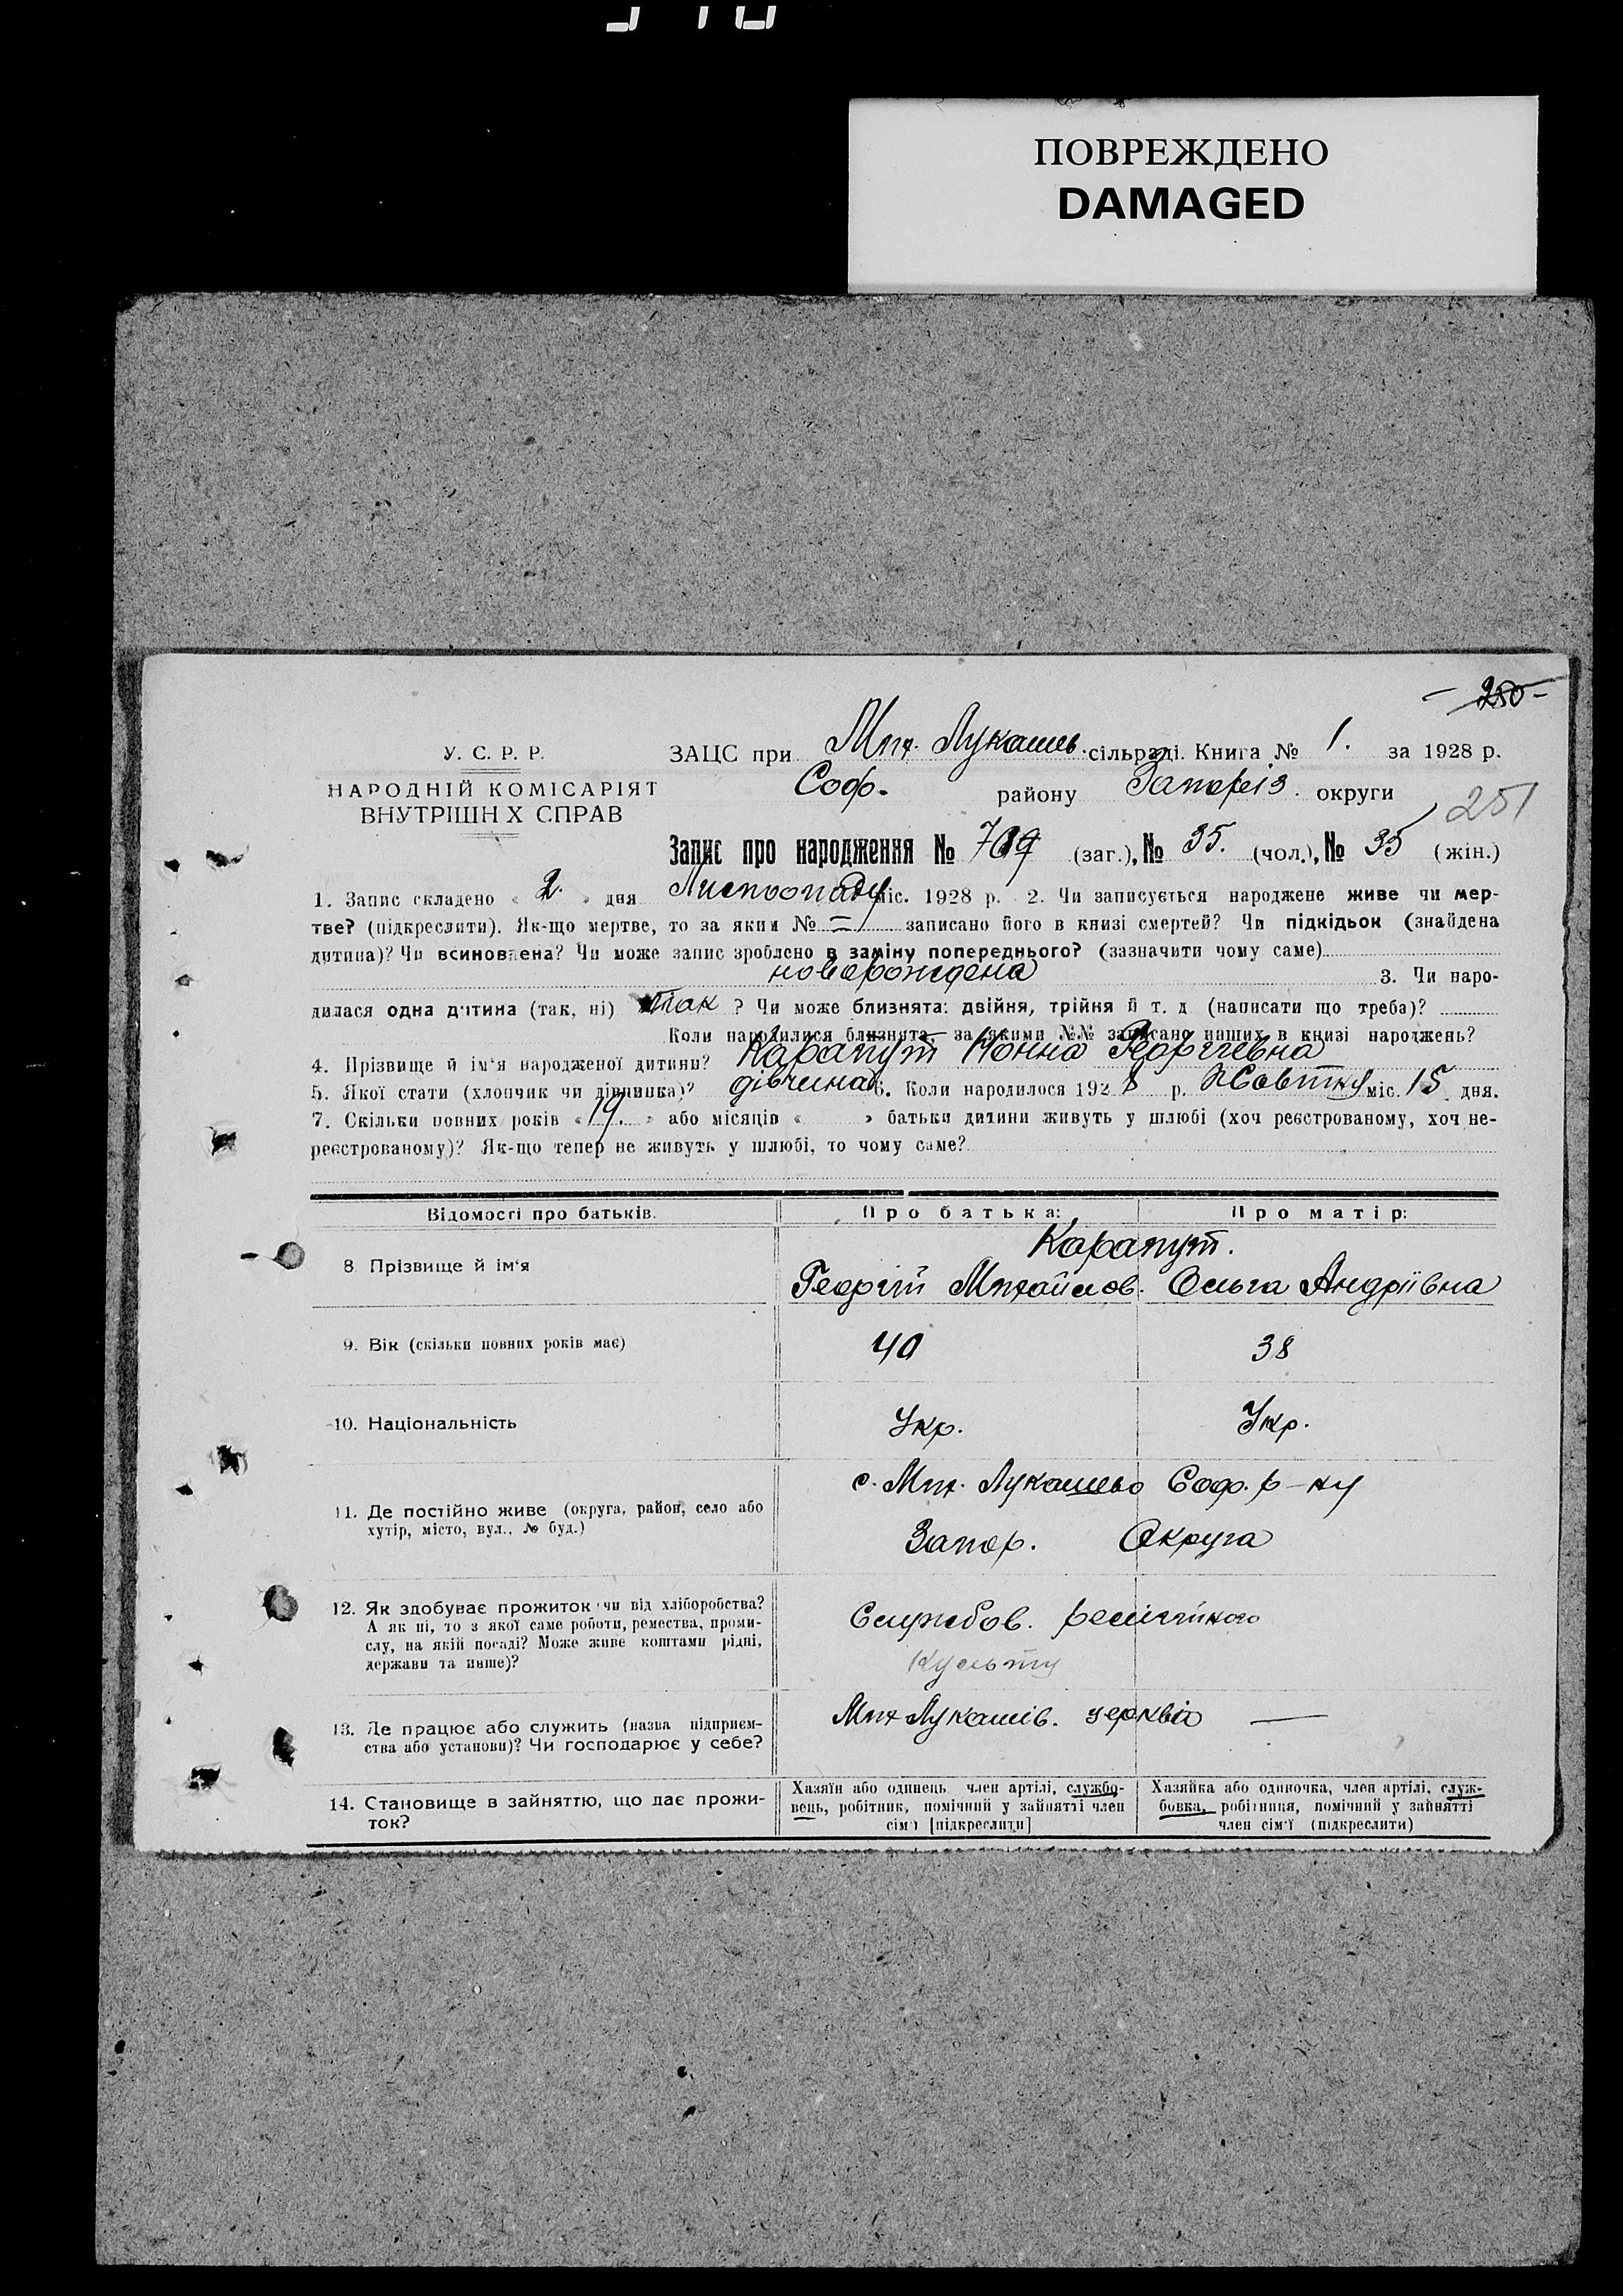 ПОВРЕЖДЕНО
DAMAGED
- 250 -
У. С. Р. Р.
НАРОДНІЙ КОМІСАРІЯТ
ВНУТРІШН Х СПРАВ
ЗАЦС при Мих. Лукашев. сільраді. Книга № 1. за 1928 р.
Соф. району Запоріз. округи
251
Запис про народження № (заг.), № 35. (чол.), № 35 (жін.)
1. Запис складено « 2. » дня Листопаду міс. 1928 р. 2. Чи записується народжене живе чи мер-
тве? (підкреслити). Як-що мертве, то за яким № — записано його в книзі смертей? Чи підкідьок (знайдена
дитина)? Чи всиновлена? Чи може запис зроблено в заміну попереднього? (зазначити чому саме)
новорождена 3. Чи наро-
дилася одна дитина (так, ні) так ? Чи може близнята: двійня, трійня й т. д (написати що треба)?
Коли народилися близнята, за якими №№ записано инших в книзі народжень?
4. Прізвище й ім'я народженої дитини? Карапут Нонна Георгіевна
5. Якої стати (хлопчик чи дівчинка)? дівчина 6. Коли народилося 1928 р. Жовтня міс. 15 дня.
7. Скільки повних років « 19. » або місяців « » батьки дитини живуть у шлюбі (хоч реєстрованому, хоч не-
реєстрованому)? Як-що тепер не живуть у шлюбі, то чому саме?
Відомості про батьків. Про батька: Про матір:
Карапут.
8 Прізвище й ім'я Георгій Михайлов. Ольга Андріївна
9. Вік (скільки повних років має) 40 38
10. Національність Укр. Укр.
с. Мих. Лукашево Соф. р-ну
11. Де постійно живе (округа, район, село або
хутір, місто, вул., № буд.)
Запор. Округа
12. Як здобуває прожиток чи від хліборобства?
А як ні, то з якої саме роботи, ремества, проми-
слу, на якій посаді? Може живе коштами рідні,
держави та инше)?
Службов. релігійного
Культу
13. Де працює або служить (назва підприєм-
ства або установи)? Чи господарює у себе?
Мих Лукашів. церква —
14. Становище в зайняттю, що дає прожи-
ток?
Хазяїн або одинець член артілі, службо-
вець, робітник, помічний у зайнятті член
сім'ї [підкреслити]
Хазяйка або одиночка, член артілі, служ-
бовка, робітниця, помічний у зайнятті
член сім'ї (підкреслити)